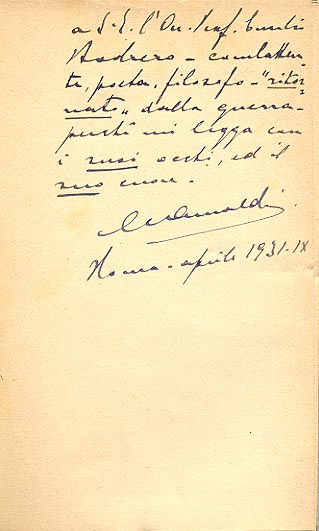 a S. E. l'On. Prof. Emilio
Bodrero – combatten-
te, poeta, filosofo – "ritor-
nato" dalla guerra –
perché mi legga con
i suoi occhi, ed il
suo cuore.
Roma - aprile 1931-IX